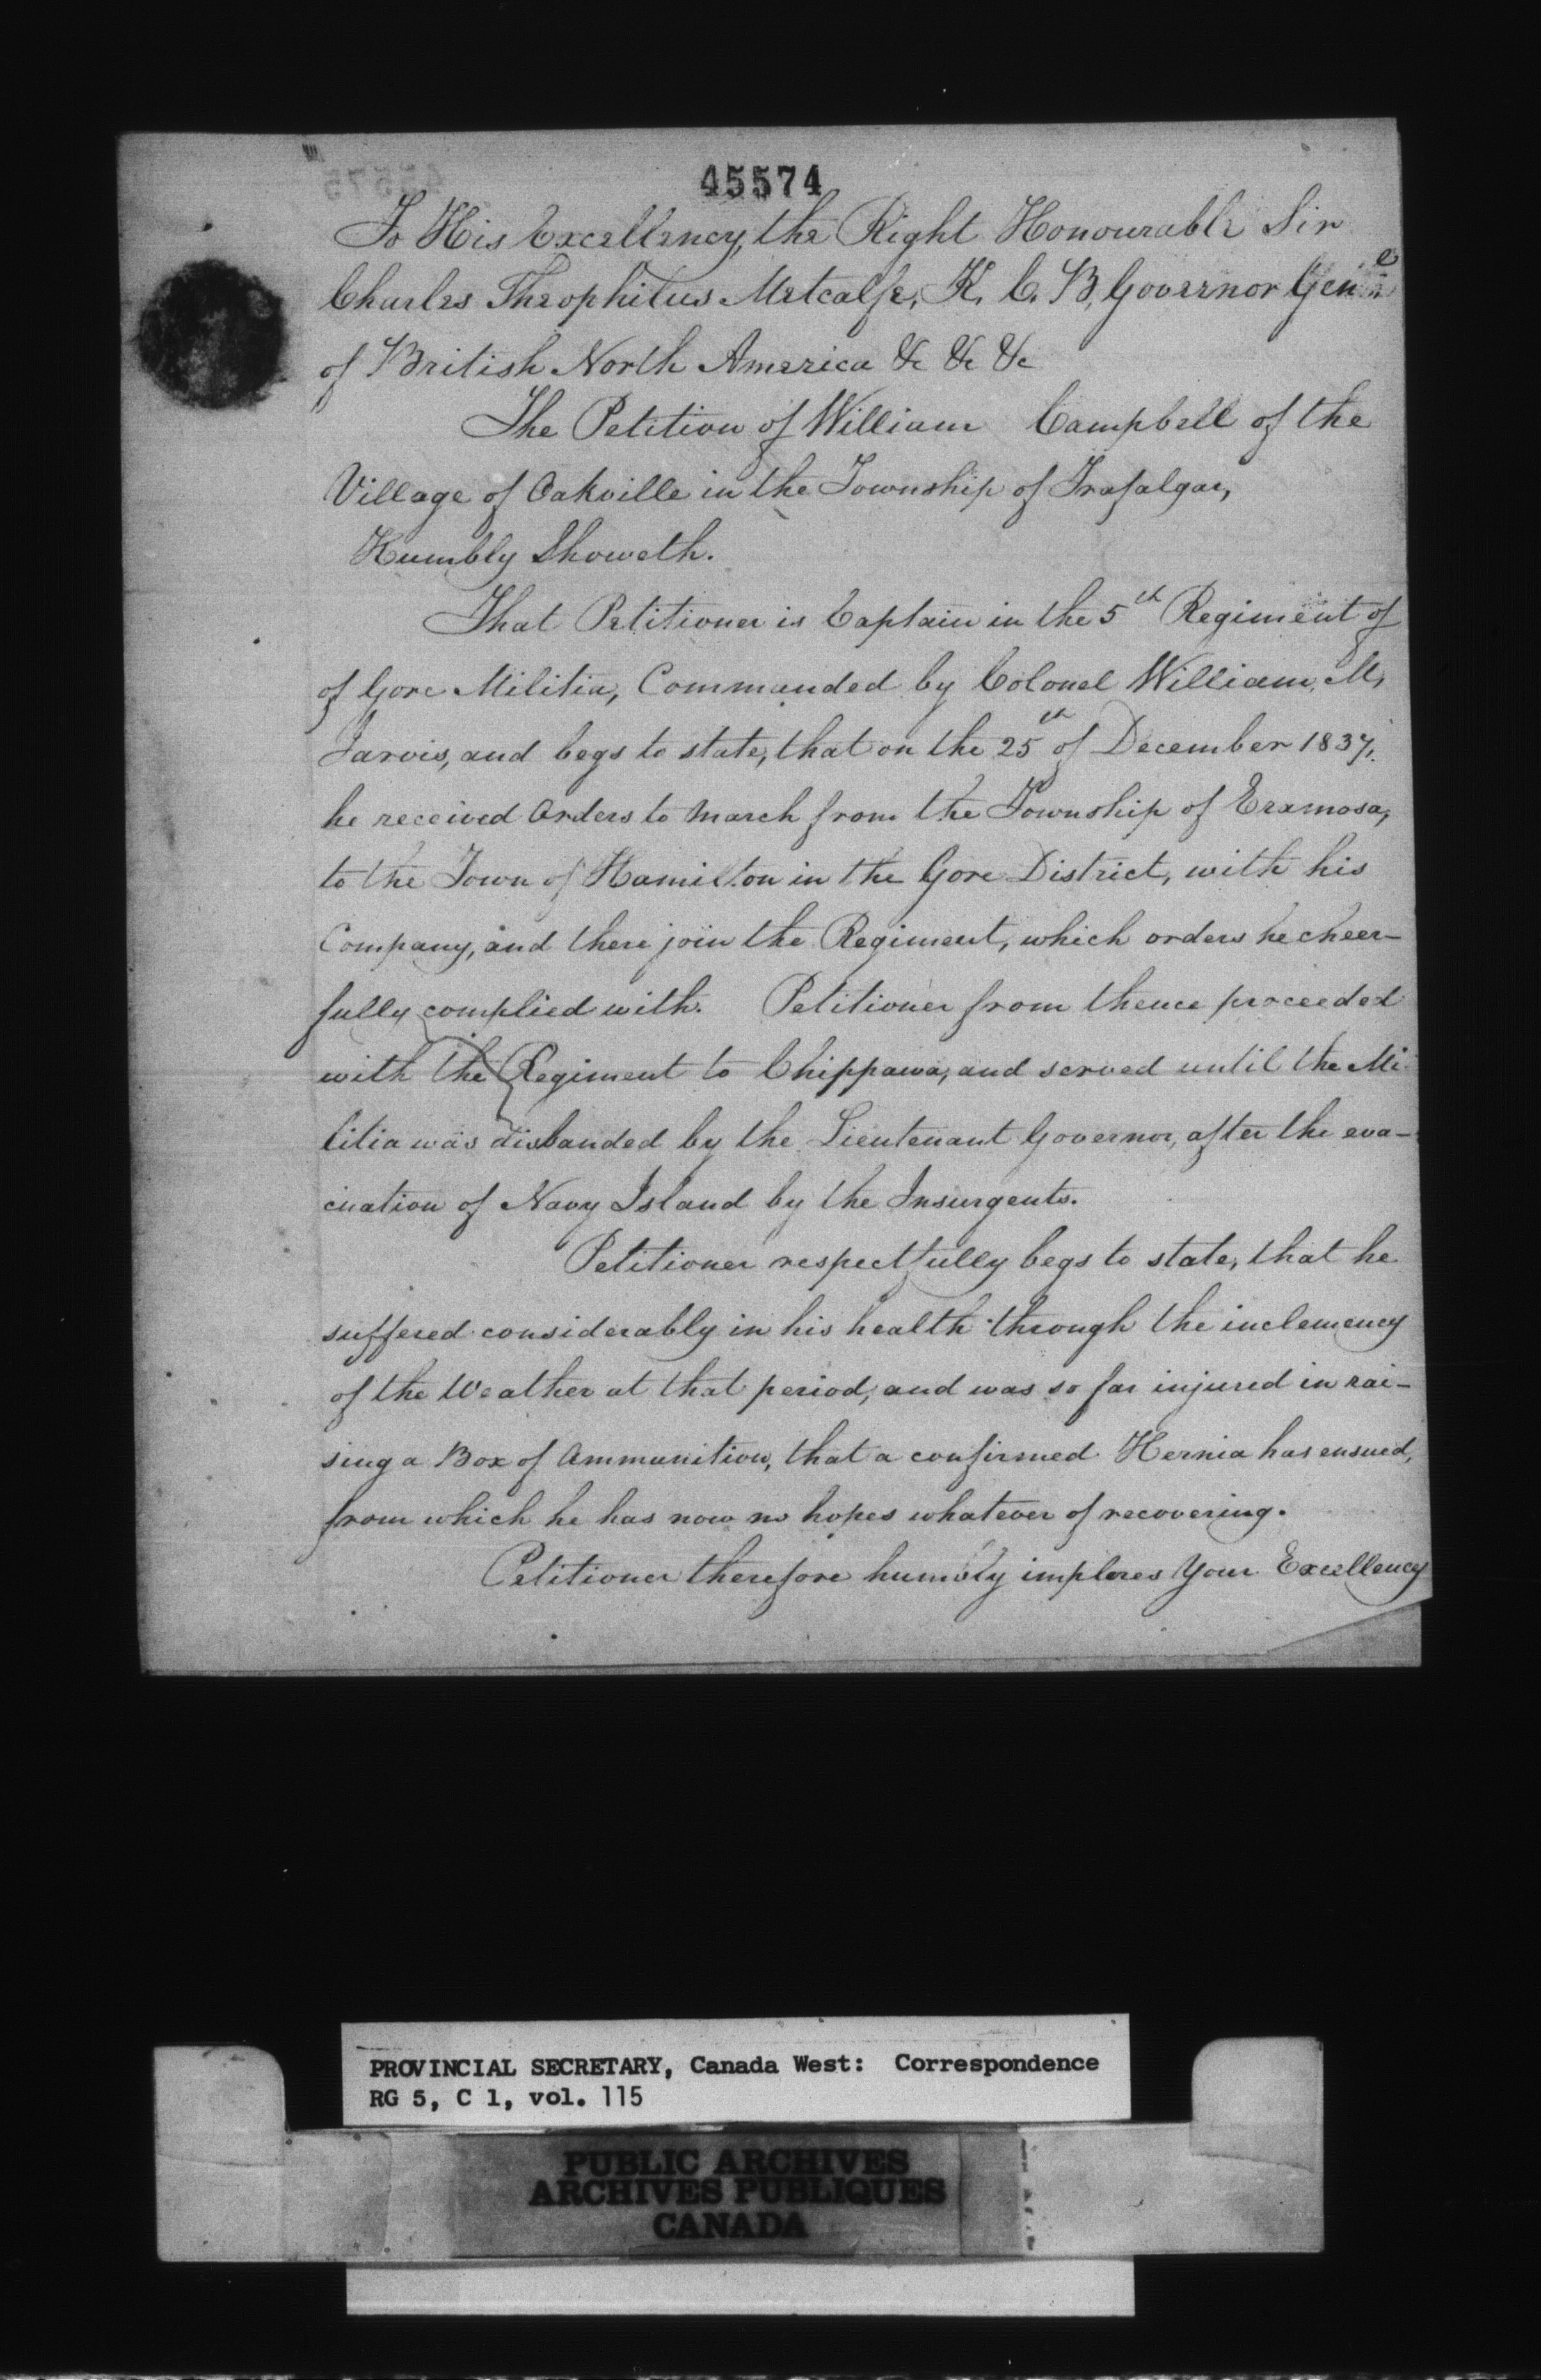 45574
To His Excellency, the Right Honourable Sir
Charles Theophilus Metcalfe, K. C. B, Governor Gen
of British North America &c &c &c
The Petition of William Campbell of the
Village of Oakville in the Township of Trafalgar,
Humbly Showeth.
That Petitioner is Captain in the 5th Regiment of
of Gore Militia, Commanded by Colonel William, M,
Jarvis, and begs to state, that on the 25th of December 1837,
he received Orders to March from the Township of Eramosa,
to the Town of Hamilton in the Gore District, with his
Company, and there join the Regiment, which orders he cheer-
fully complied with. Petitioner from thence proceeded
with the Regiment to Chippawa, and served until the Mi-
litia was disbanded by the Lieutenant Governor, after the eva-
cuation of Navy Island by the Insurgents.
Petitioner respectfully begs to state, that he
suffered considerably in his health through the inclemency
of the Weather at that period, and was so far injured in rai-
sing a Box of Ammunition, that a confirmed Hernia has ensued,
from which he has now no hopes whatever of recovering.
Petitioner therefore humbly implores Your Excellency
PROVINCIAL SECRETARY, Canada West: Correspondence
RG 5, C 1, vol. 115
PUBLIC ARCHIVES
ARCHIVES PUBLIQUES
CANADA